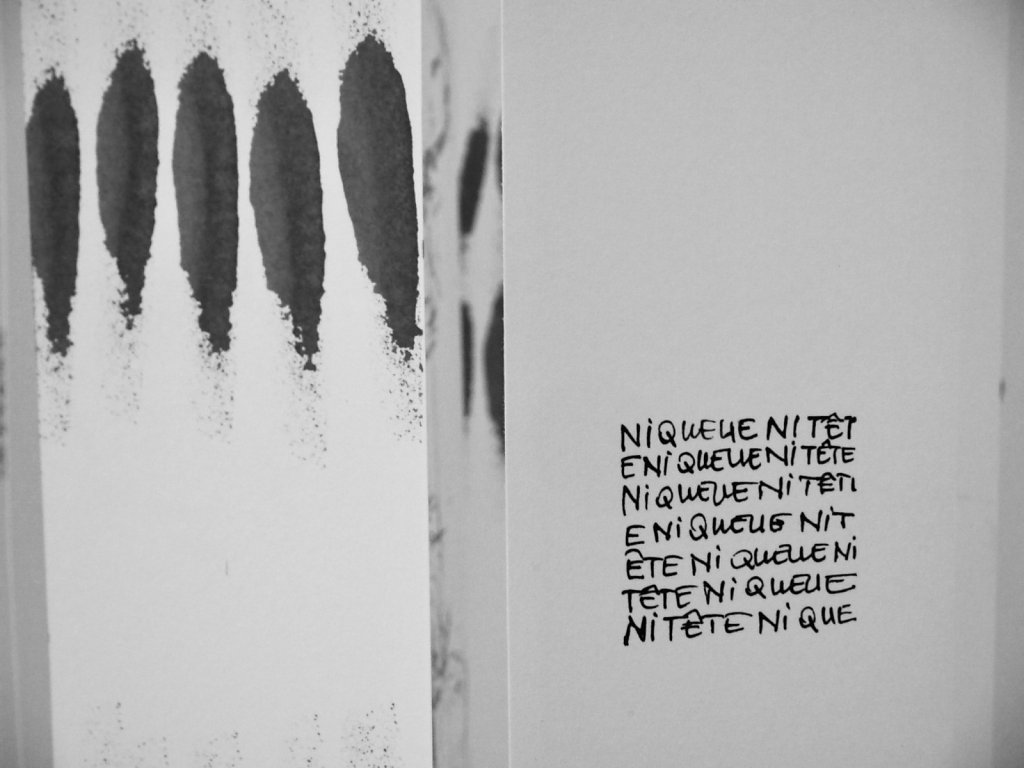 NI QUEUE NI TÊT
E NI QUEUE NI TÊTE
NI QUEUE NI TÊTI
E NI QUEUE NI T
ÊTE NI QUEUE NI
TÊTE NI QUEUE
NI TÊTE NI QUE